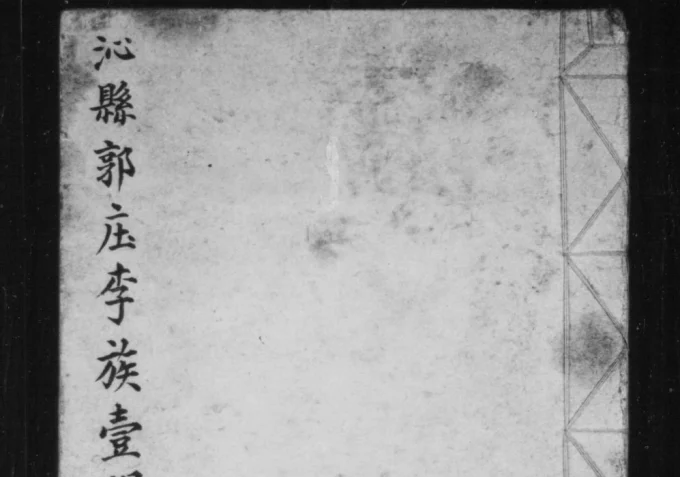 沁縣郭庄李族壹